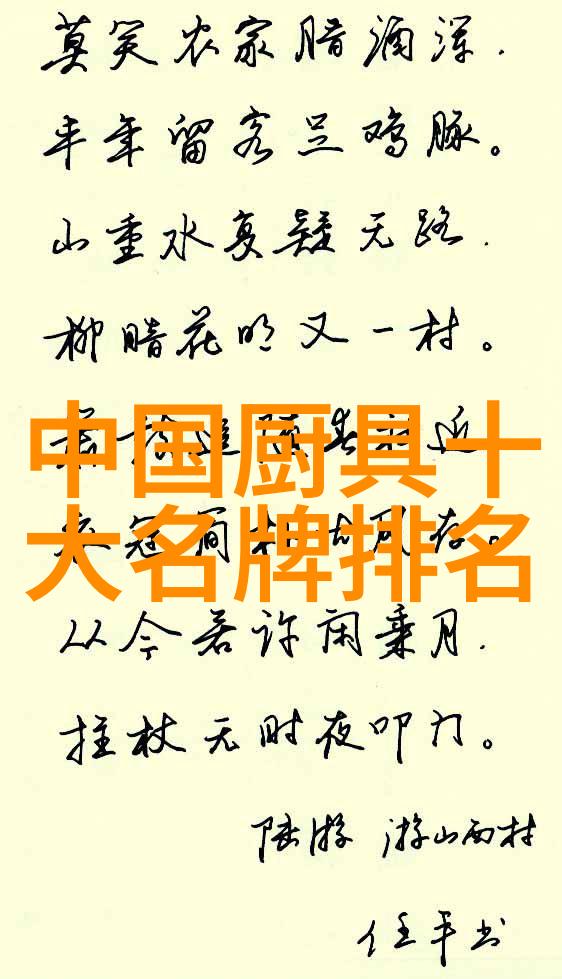 莫笑农家腊酒浑,
丰年留客足鸡豚。
山重水复疑无路,
柳暗花明又一村。
中国厨具十
追随春社近
大名牌排名
衣冠简朴古风存。
从今若许闲乘月,
拄杖无时夜叩门。
陆游 游山西村
任平书